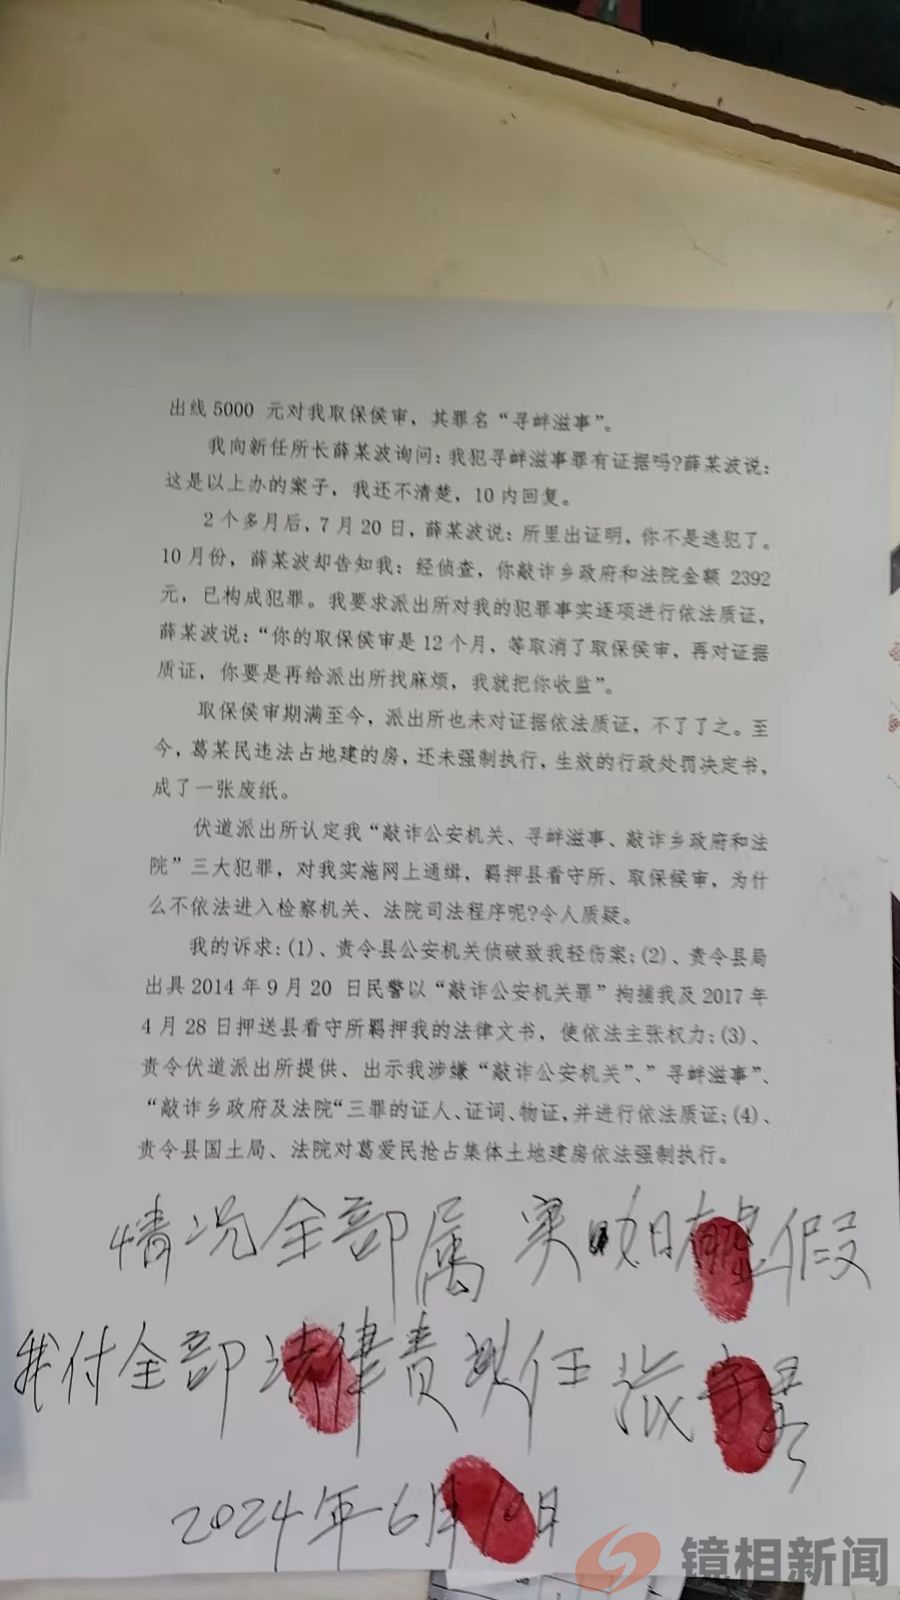 出线5000 元对我取保侯审，其罪名“寻衅滋事”。
我向新任所长薛某波询问：我犯寻衅滋事罪有证据吗？薛某波说：
这是以上办的案子，我还不清楚，10内回复。
2个多月后，7月20日，薛某波说：所里出证明，你不是逃犯了。
10月份，薛某波却告知我：经侦查，你敲诈乡政府和法院金额 2392
元，已构成犯罪。我要求派出所对我的犯罪事实逐项进行依法质证，
薛某波说：“你的取保侯审是12个月，等取消了取保侯审，再对证据
质证，你要是再给派出所找麻烦，我就把你收监”。
取保侯审期满至今，派出所也未对证据依法质证，不了了之。至
今，葛某民违法占地建的房，还未强制执行，生效的行政处罚决定书，
成了一张废纸。
伏道派出所认定我“敲诈公安机关、寻衅滋事、敲诈乡政府和法
院”三大犯罪，对我实施网上通缉，羁押县看守所、取保候审，为什
么不依法进入检察机关、法院司法程序呢?令人质疑。
我的诉求：(1)、责令县公安机关侦破致我轻伤案；(2)、责令县局
出具2014年9月20 日民警以“敲诈公安机关罪”拘捕我及2017年
4月28日押送县看守所羁押我的法律文书，使依法主张权力；(3)、
责令伏道派出所提供、出示我涉嫌“敲诈公安机关”、”寻衅滋事”、
“敲诈乡政府及法院“三罪的证人、证词、物证，并进行依法质证；(4)、
责令县国土局、法院对葛爱民抢占集体土地建房依法强制执行。
情况全部属实如有虚假
我付全部法律责任 张
2024年6月10日
镜相新闻